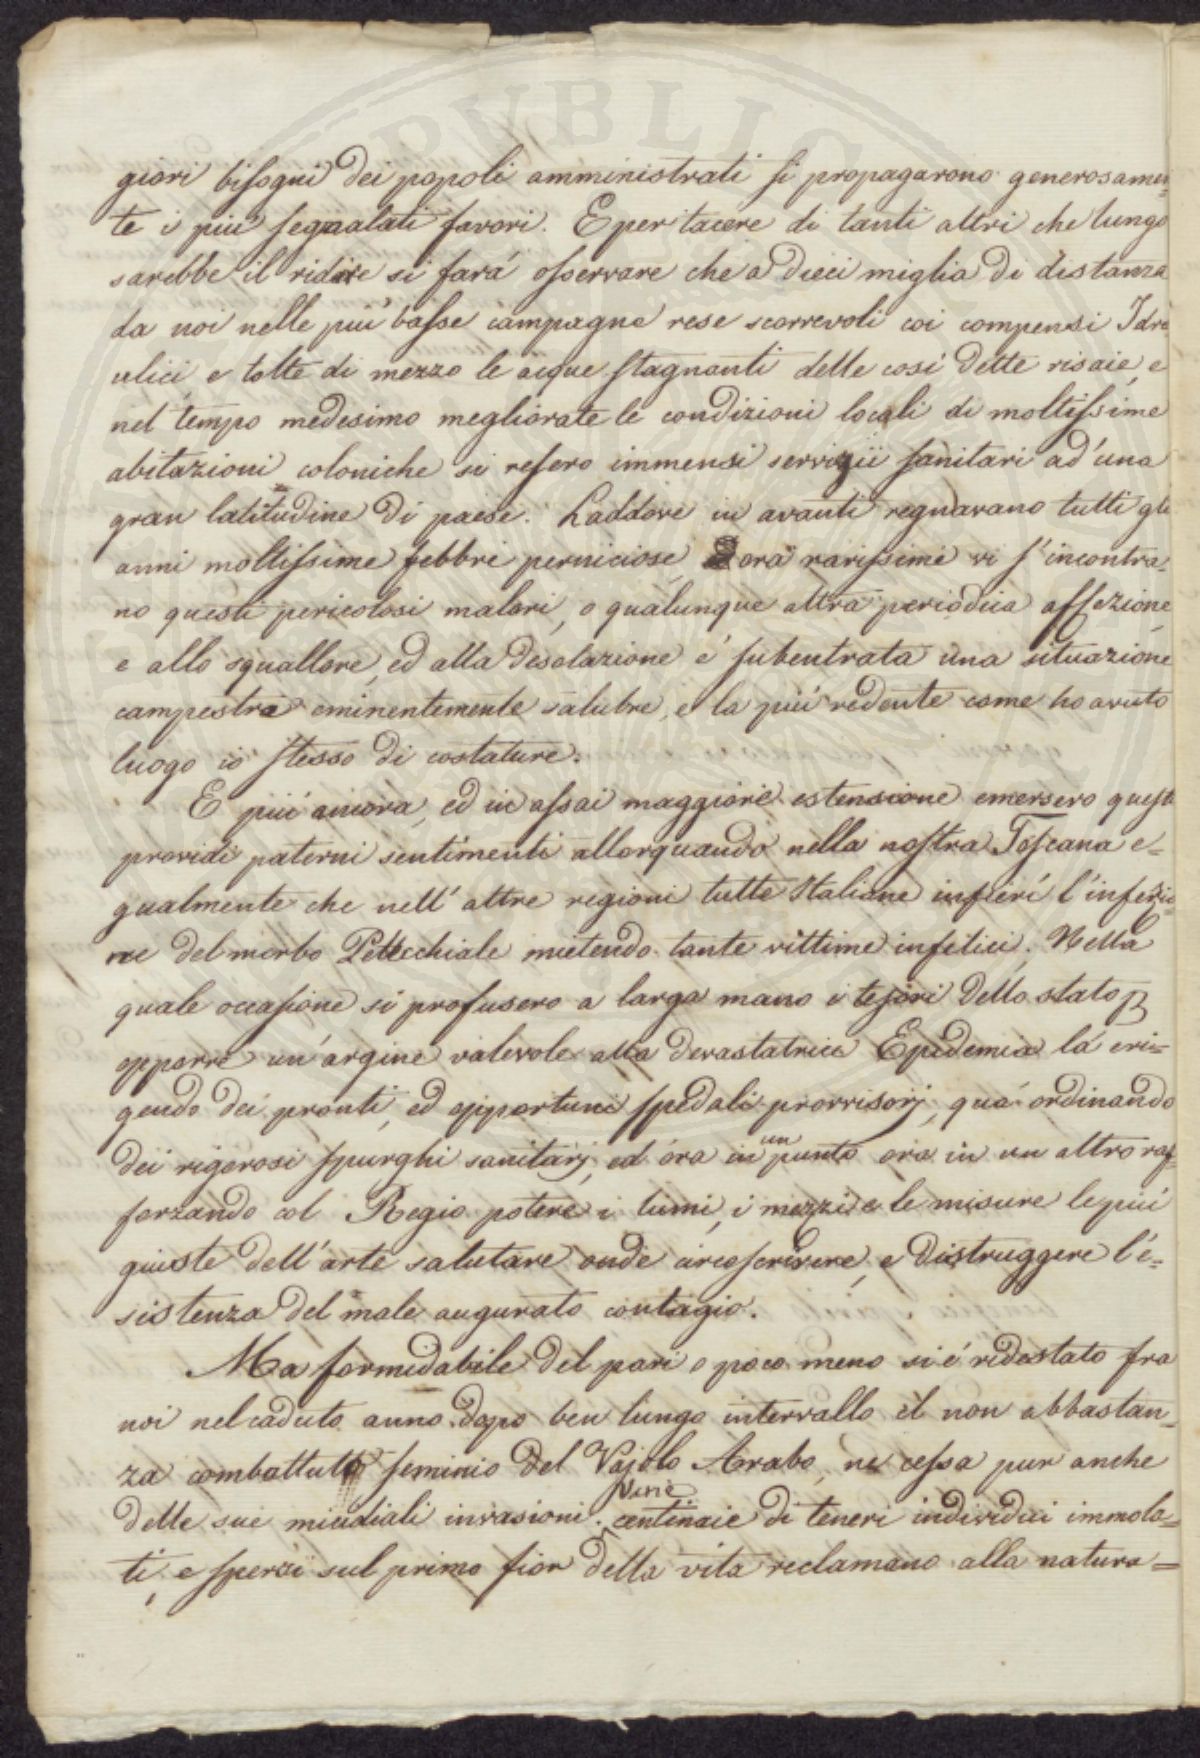 giori bisogni dei popoli amministrati si propagarono generosamen=
te i piú segnalati favori. E per tacere di tanti altri che lungo
sarebbe il ridire si fará osservare che a dieci miglia di distanza
da noi nelle piú basse campagne rese scorrevoli coi compensi Idra
ulici e tolte di mezzo le acque stagnanti delle cosí dette risaie, e
nel tempo medesimo megliorate le condizioni locali di moltissime
abitazioni coloniche si resero immensi servigii sanitari ad una
gran latitudine di paese. Laddove in avanti regnavano tutti gli
anni moltissime febbri perniciose, ora rarissime vi s'incontra=
no questi pericolosi malori, o qualunque altra periodica affezione,
e allo squallore, ed alla desolazione é subentrata una situazione
campestre eminentemente salubre, e la piú redente come ho avuto
luogo io stesso di costature.
E piú ancora, ed in assai maggiore estensione emersero questi
providi paterni sentimenti allorquando nella nostra Toscana e=
gualmente che nell'altre regioni tutte Italiane inferí l'infezio
ne del morbo Petecchiale mietendo tante vittime infelici. Nella
quale occasione si profusero a larga mano i tesori dello stato p
opporre un'argine valevole alla devastatrice Epidemia lá eri=
gendo dei pronti, ed opportuni spedali provvisorj, quá ordinando
dei rigorosi spurghi sanitarj, ed ora in un punto ora in un altro raf=
forzando col Regio potere i lumi, i mezzi e le misure le piú
giuste dell'arte salutare onde circoscrivere, e distruggere l'e=
sistenza del male augurato contagio.
Ma formidabile del pari o poco meno si é ridestato fra
noi nel caduto anno dopo ben lungo intervallo il non abbastan=
za combattuto seminio del Vajolo Arabo, ne cessa pur anche
delle sue micidiali invasioni. Varie centinaie di teneri individui immola=
ti, e spersi sul primo fior della vita reclamano alla natura=